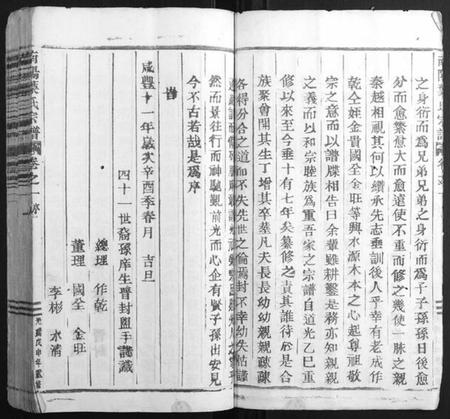 南陽葉氏宗譜
之身衍而爲兄弟兄弟之身衍而爲子子孫孫日後愈
分而愈繁愈大而愈遠使不重而修之幾使一脉之親
秦越相視其何以繼承先志垂訓後人乎幸有老成作
乾仝姪金貴國全金旺等興水源木本之心起尊祖敬
宗之意而以譜牒相告曰余輩雖耕鑿是務亦知親親
之義而以和宗睦族爲重吾家之宗譜自道光乙巳重
修以來至今垂十有七年矣纂修之責其誰待於是合
族聚會開其生丁增其卒塟凡夫長長幼幼親親疎疎
各得分合之道而不失先世之倫
然而景往行而神馳觀前光而心企有賢子孫出安見
今不古若哉是爲序
旹
咸豐十一年歲次辛酉季春月 吉旦
四十一世裔孫庠生晉封盥手謹識
總理 作乾
董理 國全 金旺
李彬 水清
南陽葉氏宗譜 卷之一 序